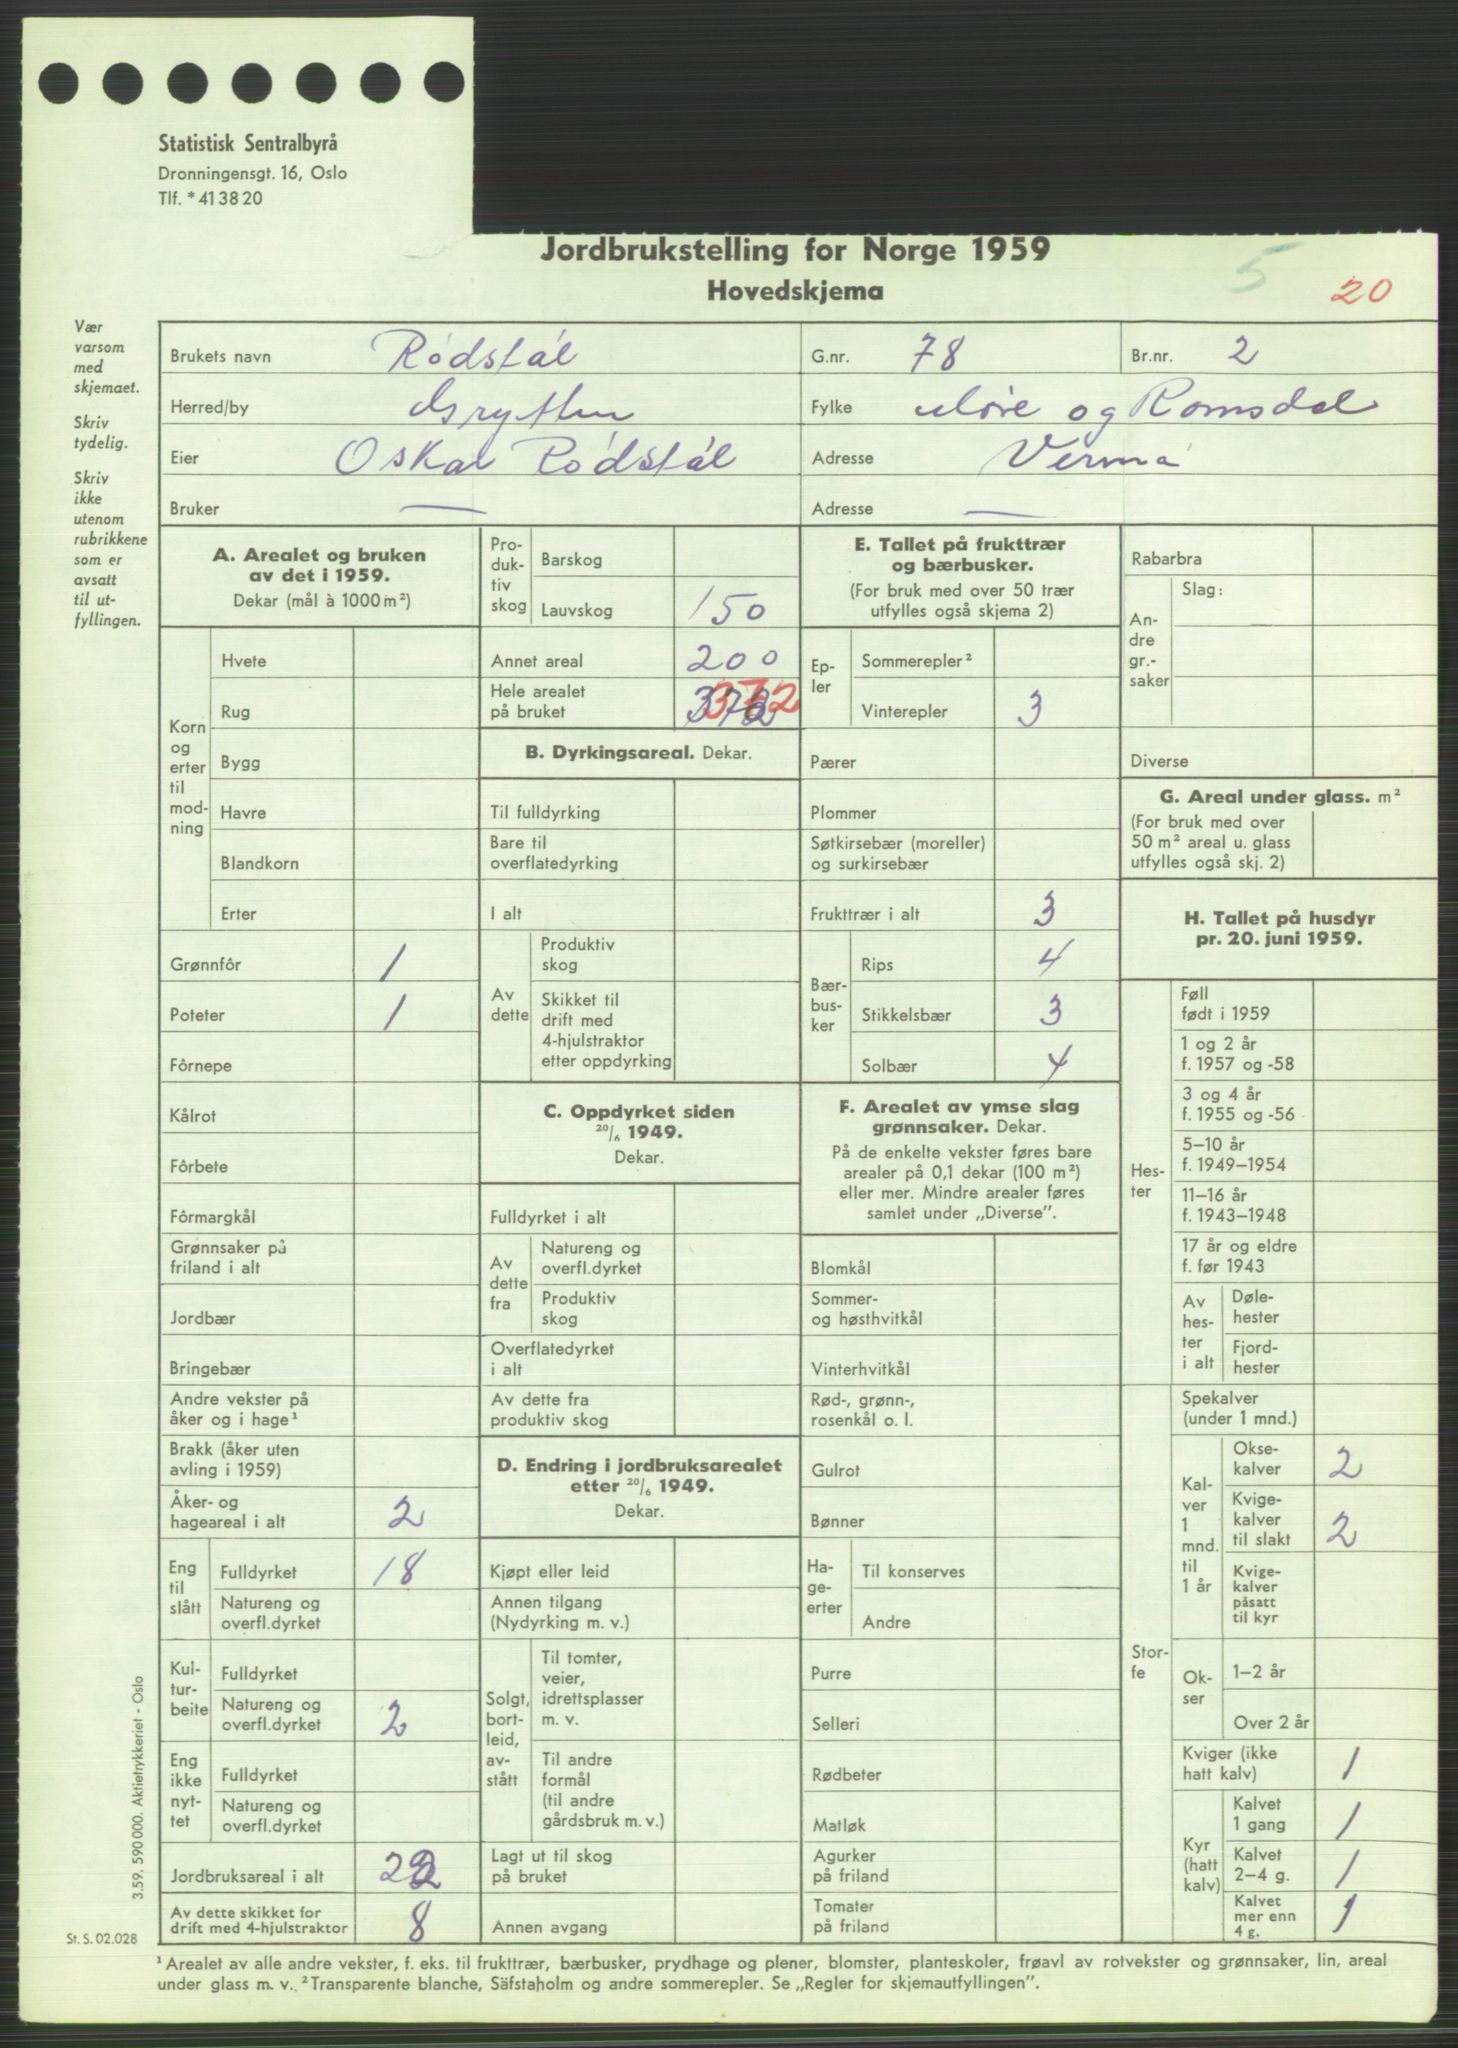 Statistisk Sentralbyrå
Dronningensgt. 16, Oslo
Tlf. *41 38 20
Jordbrukstelling for Norge 1959
Hovedskjema
5
20
Vær
varsom
med
skjemaet.
Skriv
tydelig.
Skriv
ikke
utenom
rubrikkene
som er
avsatt
til ut-
fyllingen.
Brukets navn Rødstøl G.nr. 78 Br.nr. 2
Herred/by Grytten Fylke Møre og Romsdal
Eier Oskar Rødstøl Adresse Verma
Bruker — Adresse —
A. Arealet og bruken
av det i 1959.
Dekar (mål à 1000 m²)
Korn
og
erter
til
mod-
ning
Hvete
Rug
Bygg
Havre
Blandkorn
Erter
Grønnfôr 1
Poteter 1
Fôrnepe
Kålrot
Fôrbete
Fôrmargkål
Grønnsaker på
friland i alt
Jordbær
Bringebær
Andre vekster på
åker og i hage¹
Brakk (åker uten
avling i 1959)
Åker- og
hageareal i alt 2
Eng
til
slått
Fulldyrket 18
Natureng og
overfl.dyrket
Kul-
tur-
beite
Fulldyrket
Natureng og
overfl.dyrket 2
Eng
ikke
nyt-
tet
Fulldyrket
Natureng og
overfl.dyrket
Jordbruksareal i alt 22
Av dette skikket for
drift med 4-hjulstraktor 8
Pro-
duk-
tiv
skog
Barskog
Lauvskog 150
Annet areal 200
Hele arealet
på bruket 372
B. Dyrkingsareal. Dekar.
Til fulldyrking
Bare til
overflatedyrking
I alt
Av
dette
Produktiv
skog
Skikket til
drift med
4-hjulstraktor
etter oppdyrking
C. Oppdyrket siden
20/6 1949.
Dekar.
Fulldyrket i alt
Av
dette
fra
Natureng og
overfl.dyrket
Produktiv
skog
Overflatedyrket
i alt
Av dette fra
produktiv skog
D. Endring i jordbruksarealet
etter 20/6 1949.
Dekar.
Kjøpt eller leid
Annen tilgang
(Nydyrking m. v.)
Solgt,
bort-
leid,
av-
stått
Til tomter,
veier,
idrettsplasser
m. v.
Til andre
formål
(til andre
gårdsbruk m. v.)
Lagt ut til skog
på bruket
Annen avgang
E. Tallet på frukttrær
og bærbusker.
(For bruk med over 50 trær
utfylles også skjema 2)
Ep-
ler
Sommerepler²
Vinterepler 3
Pærer
Plommer
Søtkirsebær (moreller)
og surkirsebær
Frukttrær i alt 3
Bær-
bus-
ker
Rips 4
Stikkelsbær 3
Solbær 4
F. Arealet av ymse slag
grønnsaker. Dekar.
På de enkelte vekster føres bare
arealer på 0,1 dekar (100 m²)
eller mer. Mindre arealer føres
samlet under „Diverse”.
Blomkål
Sommer-
og høsthvitkål
Vinterhvitkål
Rød-, grønn-,
rosenkål o. l.
Gulrot
Bønner
Ha-
ge-
erter
Til konserves
Andre
Purre
Selleri
Rødbeter
Matløk
Agurker
på friland
Tomater
på friland
Rabarbra
An-
dre
gr.-
saker
Slag:
Diverse
G. Areal under glass. m²
(For bruk med over
50 m² areal u. glass
utfylles også skj. 2)
H. Tallet på husdyr
pr. 20. juni 1959.
Hes-
ter
Føll
født i 1959
1 og 2 år
f. 1957 og -58
3 og 4 år
f. 1955 og -56
5–10 år
f. 1949–1954
11–16 år
f. 1943–1948
17 år og eldre
f. før 1943
Av
hes-
ter
i alt
Døle-
hester
Fjord-
hester
Stor-
fe
Spekalver
(under 1 mnd.)
Kal-
ver
1
mnd.
til
1 år
Okse-
kalver 2
Kvige-
kalver
til slakt 2
Kvige-
kalver
påsatt
til kyr
Ok-
ser
1–2 år
Over 2 år
Kviger (ikke
hatt kalv) 1
Kyr
(hatt
kalv)
Kalvet
1 gang 1
Kalvet
2–4 g. 1
Kalvet
mer enn
4 g. 1
3.59. 590 000. Aktietrykkeriet - Oslo
St. S. 02.028
¹ Arealet av alle andre vekster, f. eks. til frukttrær, bærbusker, prydhage og plener, blomster, planteskoler, frøavl av rotvekster og grønnsaker, lin, areal
under glass m. v. ² Transparente blanche, Säfstaholm og andre sommerepler. Se „Regler for skjemautfyllingen”.